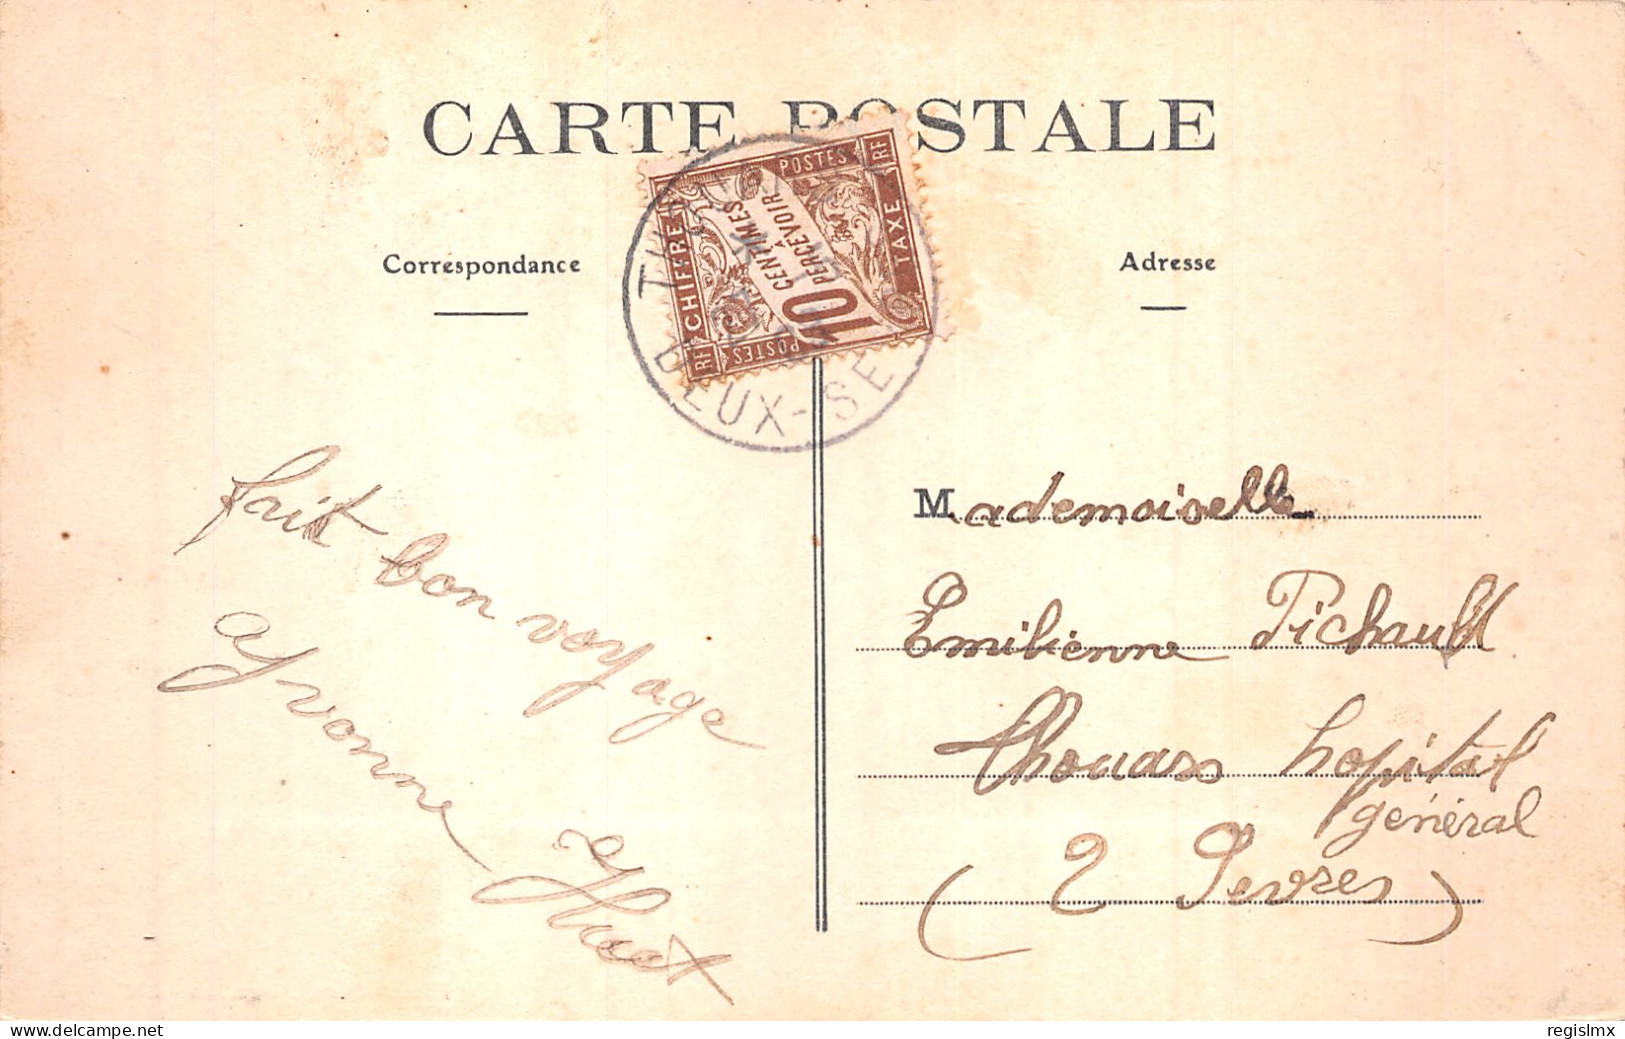 CARTE POSTALE
Correspondance
Adresse
RF CHIFFRE
POSTES
RF
TAXE
10 CENTIMES
À
PERCEVOIR
RF
POSTES
DEUX-SE
fait bon voyage
Yvonne
Huet
Mademoiselle
Emilienne Pichault
Thouars hopital
général
( 2 Sevres )
delcampe.net
regislmx